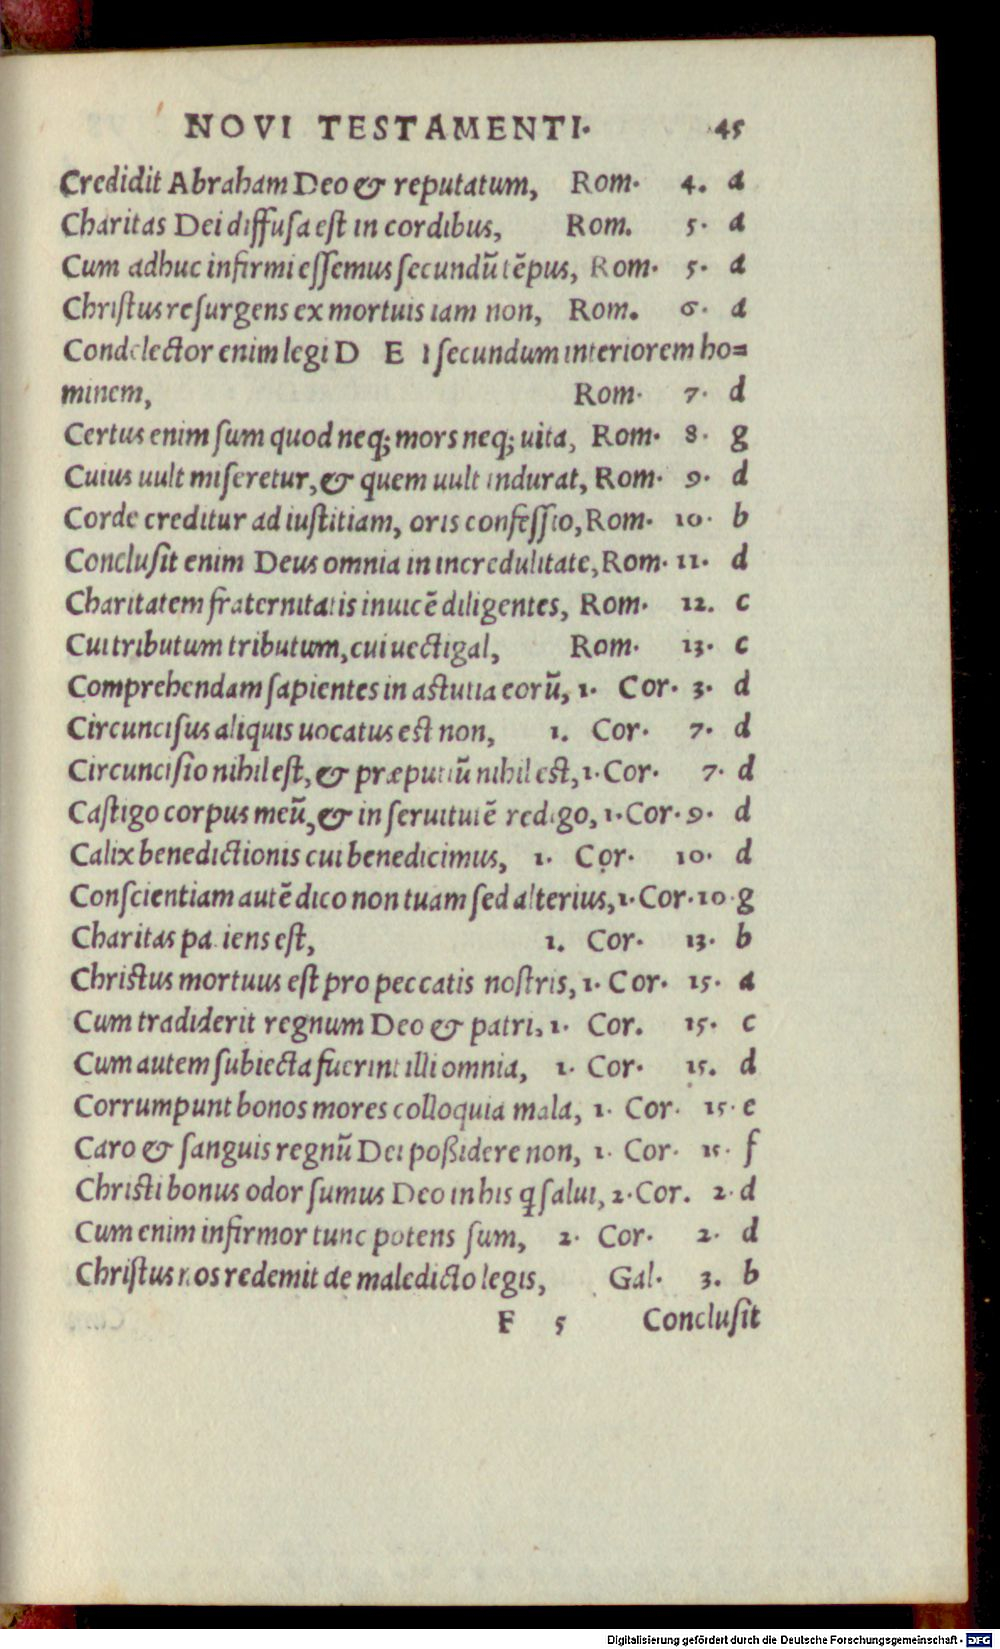 NOVI TESTAMENTI. 45
Credidit Abraham Deo & reputatum, Rom. 4. a
Charitas Dei diffusa est in cordibus, Rom. 5. a
Cum adhuc infirmi essemus secundũ tẽpus, Rom. 5. a
Christus resurgens ex mortuis iam non, Rom. 6. a
Condelector enim legi D E I secundum interiorem ho=
minem, Rom. 7. d
Certus enim sum quod neq; mors neq; uita, Rom. 8. g
Cuius uult miseretur, & quem uult indurat, Rom. 9. d
Corde creditur ad iustitiam, oris confessio, Rom. 10. b
Conclusit enim Deus omnia in incredulitate, Rom. 11. d
Charitatem fraternitatis inuicẽ diligentes, Rom. 12. c
Cui tributum tributum, cui uectigal, Rom. 13. c
Comprehendam sapientes in astutia eorũ, 1. Cor. 3. d
Circuncisus aliquis uocatus est non, 1. Cor. 7. d
Circuncisio nihil est, & præputiũ nihil est, 1. Cor. 7. d
Castigo corpus meũ, & in seruitutẽ redigo, 1. Cor. 9. d
Calix benedictionis cui benedicimus, 1. Cor. 10. d
Conscientiam autẽ dico non tuam sed alterius, 1. Cor. 10. g
Charitas pa iens est, 1. Cor. 13. b
Christus mortuus est pro peccatis nostris, 1. Cor. 15. a
Cum tradiderit regnum Deo & patri, 1. Cor. 15. c
Cum autem subiecta fuerint illi omnia, 1. Cor. 15. d
Corrumpunt bonos mores colloquia mala, 1. Cor. 15. e
Caro & sanguis regnũ Dei poßidere non, 1. Cor. 15. f
Christi bonus odor sumus Deo in his ꝗ salui, 2. Cor. 2. d
Cum enim infirmor tunc potens sum, 2. Cor. 2. d
Christus nos redemit de maledicto legis, Gal. 3. b
F 5 Conclusit
Digitalisierung gefördert durch die Deutsche Forschungsgemeinschaft - DFG